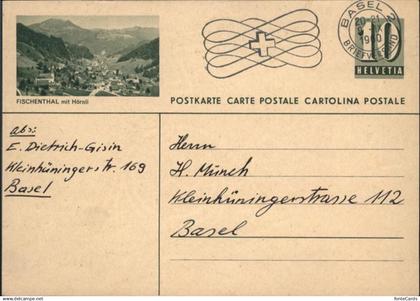 BASEL
20-21
1940
BRIEFVERSAND
10
HELVETIA
FISCHENTHAL mit Hörnli
POSTKARTE CARTE POSTALE CARTOLINA POSTALE
abs:
E. Dietrich-Gisin
Kleinhüningerstr. 169
Basel
Herrn
H. Münch
Kleinhüningerstrasse 112
Basel